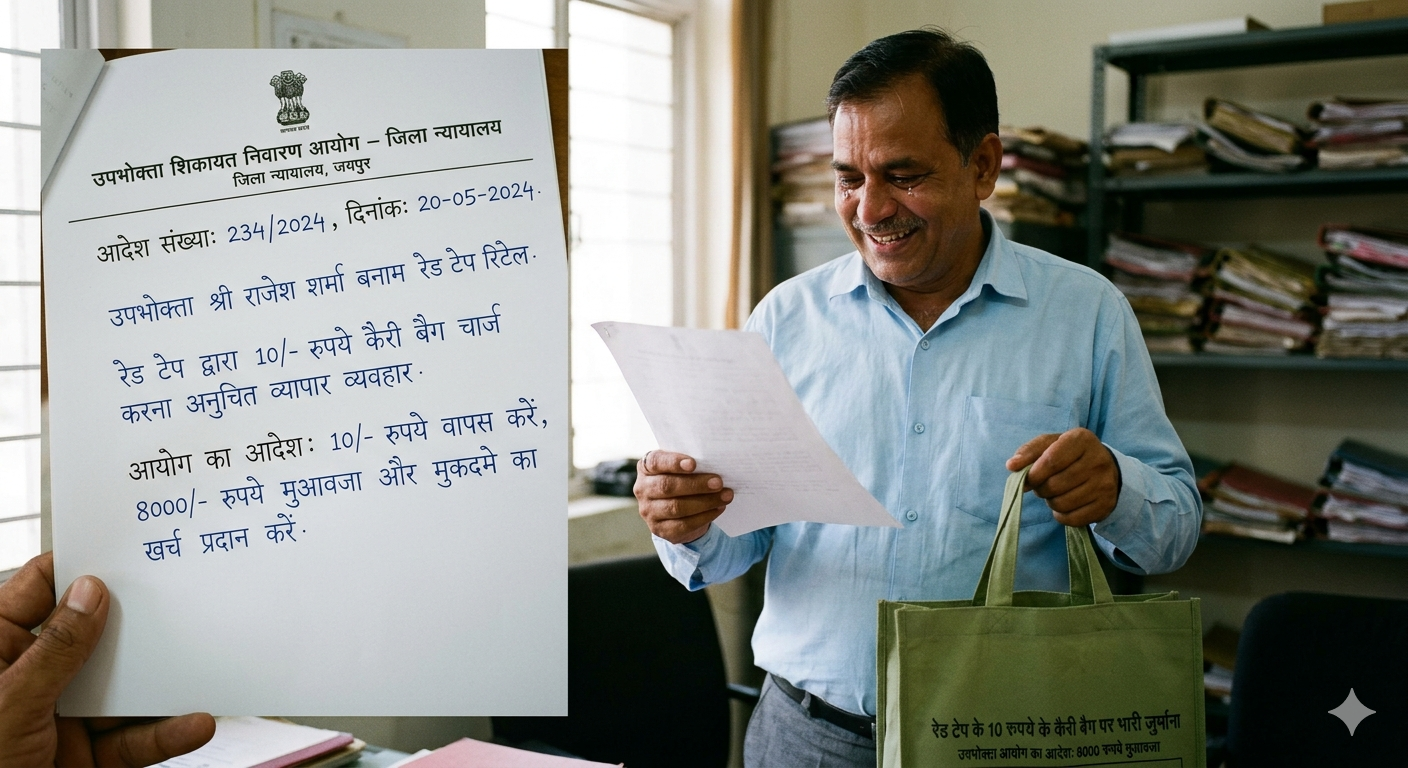 उपभोक्ता शिकायत निवारण आयोग – जिला न्यायालय
जिला न्यायालय, जयपुर
आदेश संख्याः 234/2024, दिनांकः 20-05-2024.
उपभोक्ता श्री राजेश शर्मा बनाम रेड टेप रिटेल.
रेड टेप द्वारा 10/- रुपये कैरी बैग चार्ज
करना अनुचित व्यापार व्यवहार.
आयोग का आदेशः 10/- रुपये वापस करें,
8000/- रुपये मुआवजा और मुकदमे का
खर्च प्रदान करें.
रेड टेप के 10 रुपये के कैरी बैग पर भारी जुर्माना
आयोग का आदेशः 8000 रुपये